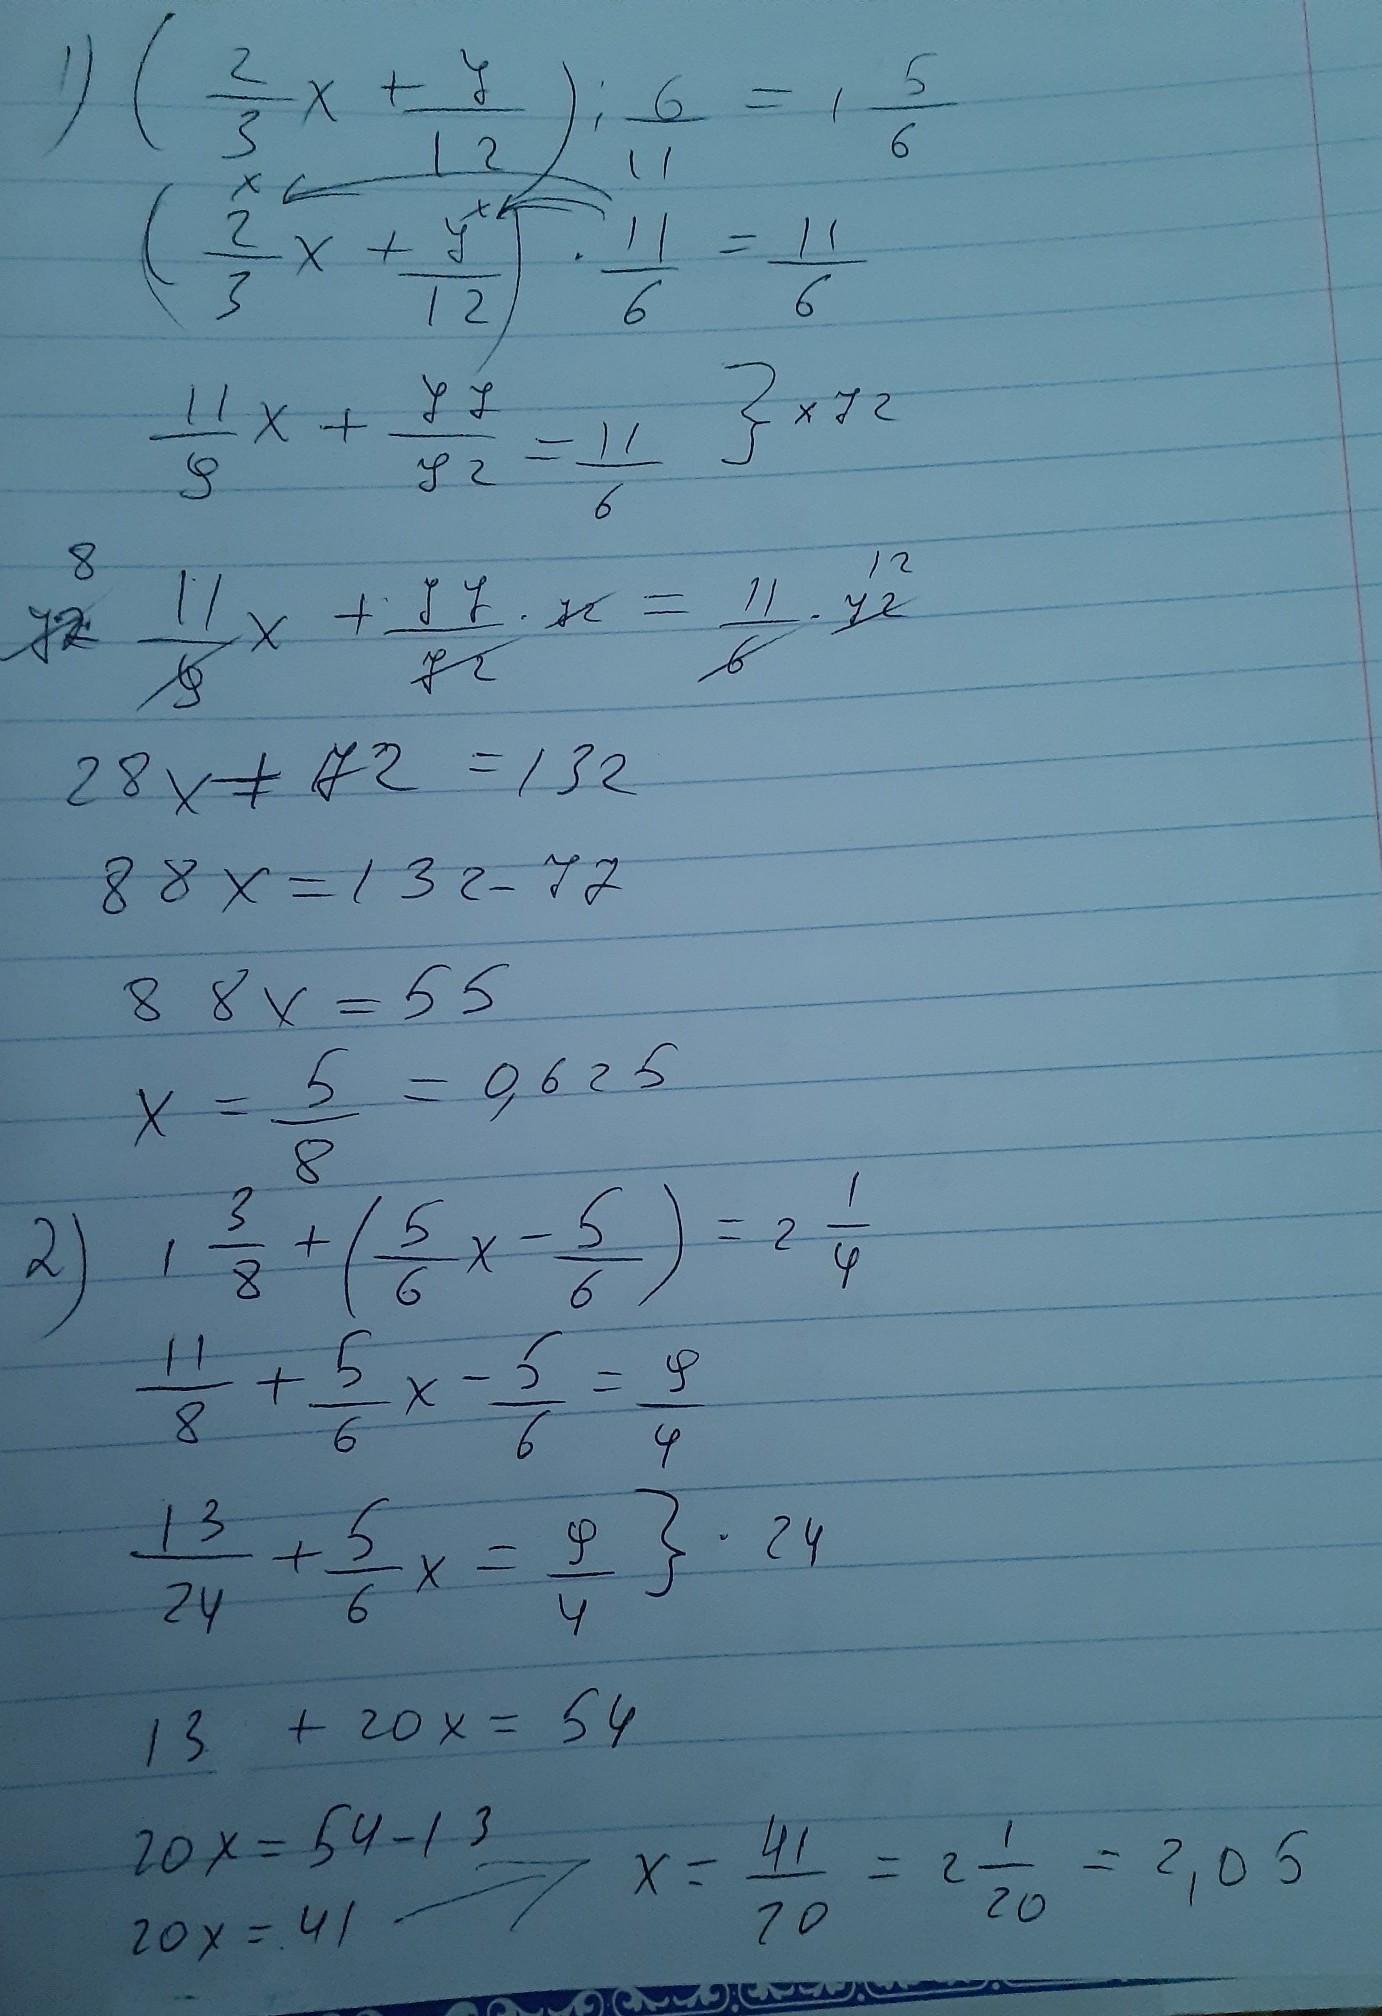 1) ( 2/3 x + 7/12 ) : 6/11 = 1 5/6
( 2/3 x + 7/12 ) · 11/6 = 11/6
11/9 x + 77/72 = 11/6 } × 72
8
72 11/9 x + 77/72 · 72 = 11/6 · 72 12
28x + 72 = 132
88x = 132 - 77
88x = 55
x = 5/8 = 0,625
2) 1 3/8 + ( 5/6 x - 5/6 ) = 2 1/4
11/8 + 5/6 x - 5/6 = 9/4
13/24 + 5/6 x = 9/4 } · 24
13 + 20x = 54
20x = 54 - 13
20x = 41
x = 41/20 = 2 1/20 = 2,05